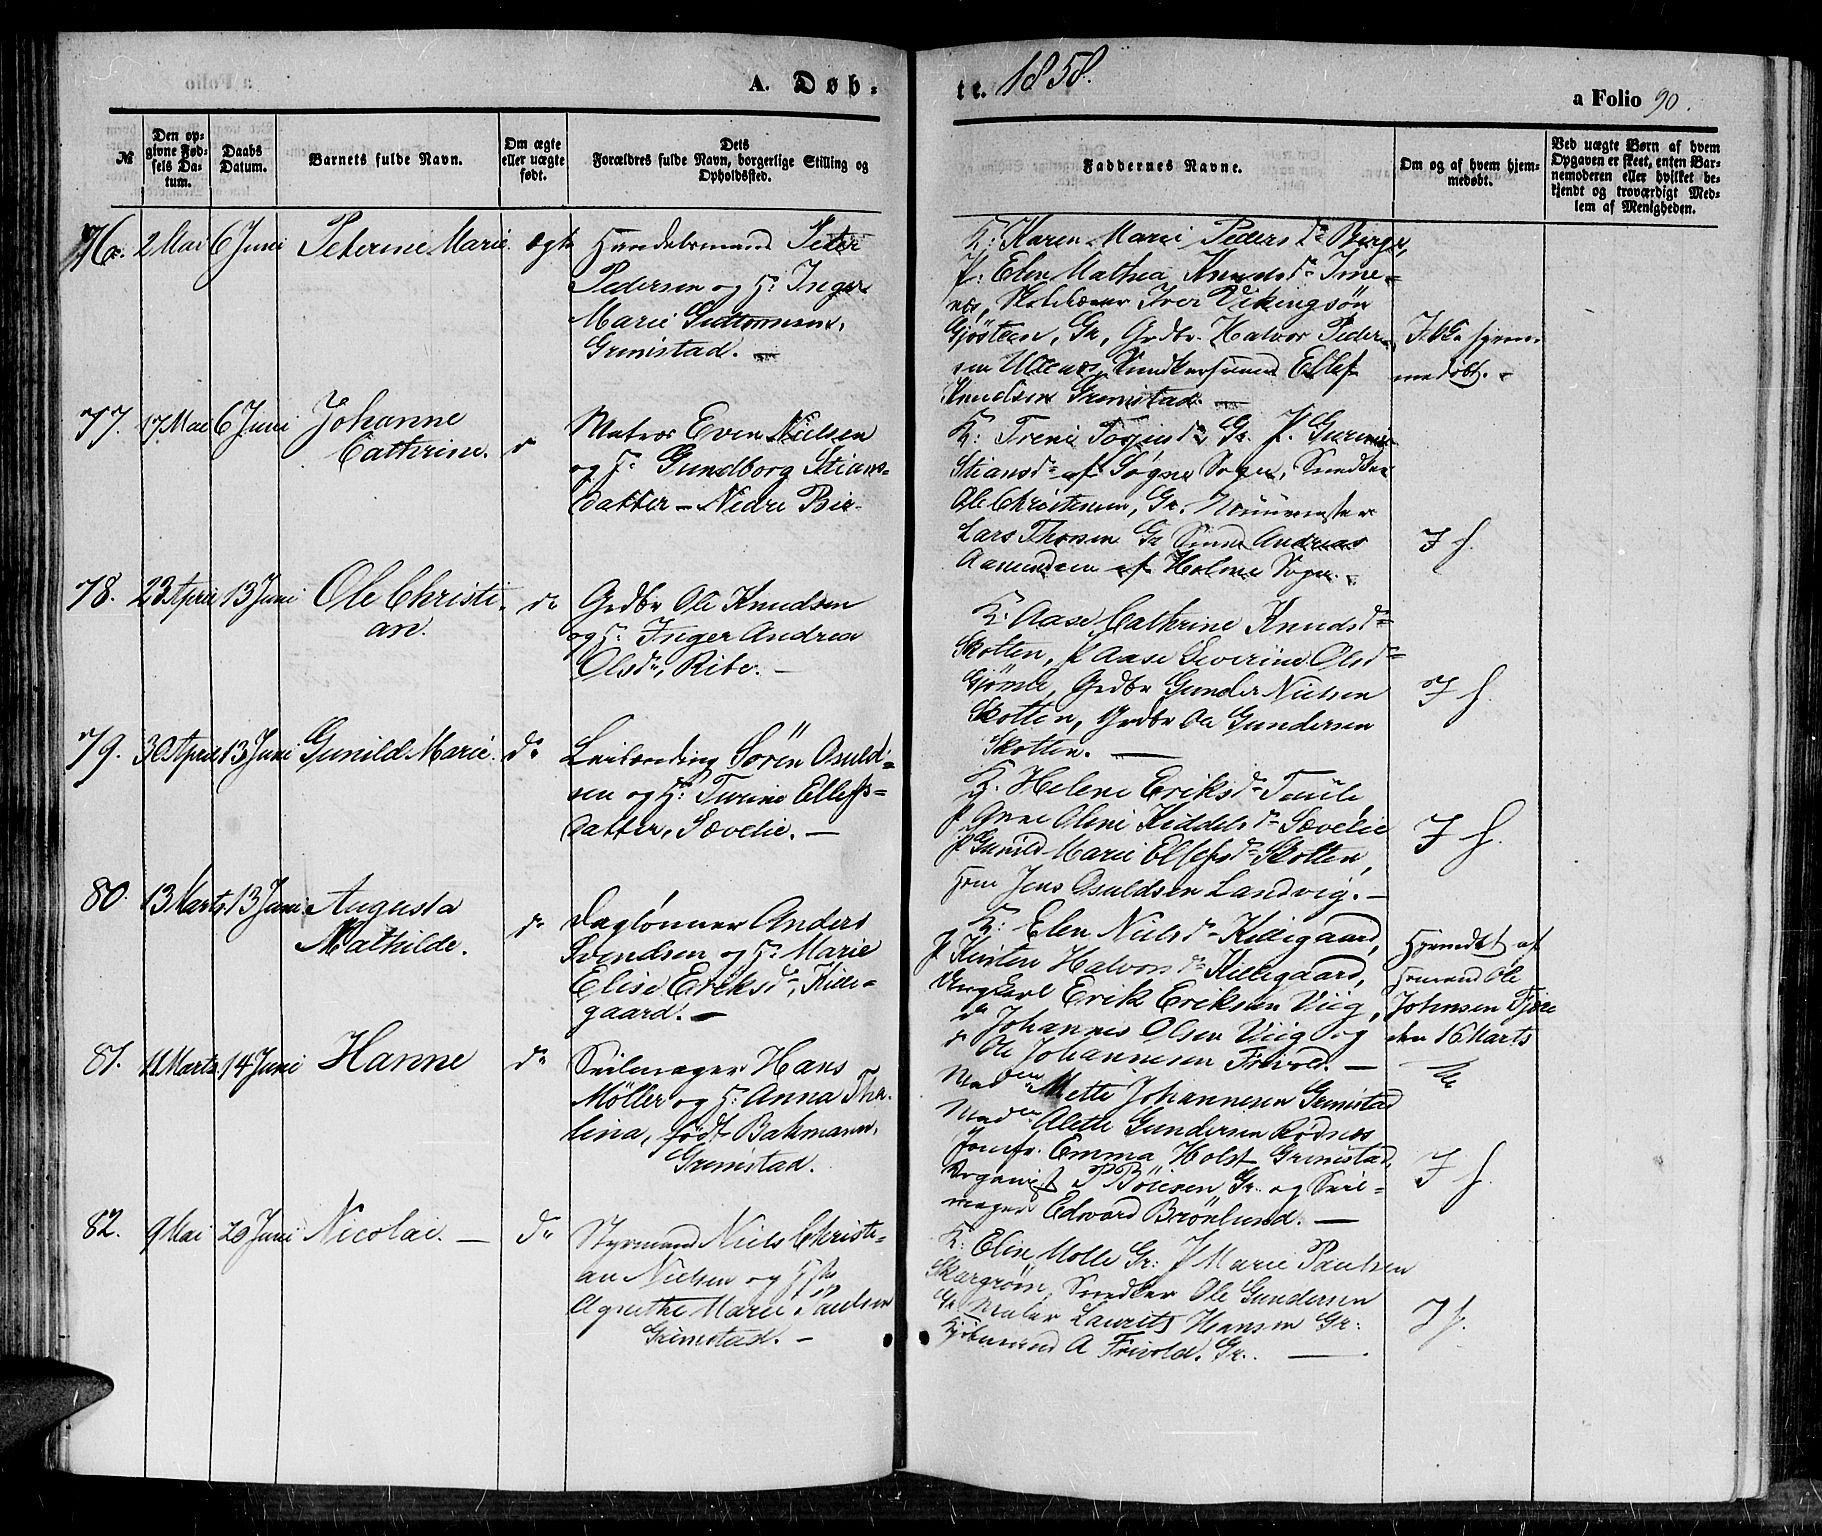 A. Døb-
te. 1858.
a Folio 90.
№
Den op-
givne Fød-
sels Da-
tum.
Daabs
Datum.
Barnets fulde Navn.
Om ægte
eller uægte
født.
Dets
Forældres fulde Navn, borgerlige Stilling og
Opholdssted.
Faddernes Navne.
Om og af hvem hjem-
medøbt.
Ved uægte Børn af hvem
Opgaven er skeet, enten Bar-
nemoderen eller hvilket be-
kjendt og troværdigt Med-
lem af Menigheden.
76. 2 Mai 6 Juni Peterine Marie ægte
Handelsmand Peter
Pedersen og H: Inger
Marie Guttormsen,
Grimstad. —
K: Karen Marie Peders dr Berge,
P: Elen Mathea Knuds dr Ime-
nes, Iver Vikingsøn
Gjøsteen, Gr, Grdbr. Halvor Peder-
sen Ellef
Knudsen Grimstad. —
Ikke hjem-
medøbt. -
77. 17 Mai 6 Juni Johanne
Cathrine. do
Matros Even Nielsen
og H: Gundborg Stians-
datter — Nedre Bie-
K: Trine dr Gr. P.
Stians dr af Søgne Sogn,
Ole Christensen, Gr,
Lars Thorsen Gr Andreas
Aamundsen af Holme Sogn. -
I h.
78. 23 April 13 Juni Ole Christi-
an. do
Grdbr Ole Knudsen
og H: Inger Andrea
Olsdr, Ribe. —
K: Aase Cathrine Knudsdr
Skotten, P Aase Severine Olsdr
Grdbr Gunder Nielsen
Skotten, Grdbr Gundersen
Skotten. —
I h.
79. 30 April 13 Juni Gunild Marie. do
Leilænding Søren Osuld-
sen og H: Turine Ellefs-
datter, Sævelie. —
K. Helene Eriks dr
P Anne Oline Kiddels dr Sævelie
P Gunild Marie Ellefs dr Skotten,
Jens Osuldsen Landvig. —
I h.
80. 13 Marts 13 Juni Augusta
Mathilde. do
Daglønner Anders
Svendsen og H: Marie
Elise Eriks dr, Kille-
gaard. —
K: Elen Niels dr Killegaard,
P Kirsten Halvors dr Killegaard,
Ungkarl Erik Eriksen Viig,
do Johannes Olsen Viig og
do Ole Johannesen Frivold. —
Hjemdøbt af
Ole
Johnsen Fjære
den 16 Marts
81. 11 Marts 14 Juni Hanne do
Seilmager Hans
Møller og H: Anna Tha-
lina, født Bakmann,
Grimstad.
Madm Mette Johannesen Grimstad
Madm Alette Gundersen Rødnes
Jomfr. Emma Holst Grimstad,
Organist P Böiesen, Gr. og Seil-
mager Edvard Brönlund. —
I h.
82. 9 Mai 20 Juni Nicolai. — do
Styrmand Niels Christi-
an Nielsen og Hstr
Agnethe Marie Paulsen
Grimstad. —
K: Elin Molle Gr: P Marie Paulsen
Ole Gundersen
Gr, Maler Laurits Hansen Gr:
Kjøbmand A Frivold. Gr. —
I h.